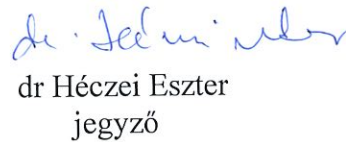 dr Héczei Eszter
jegyző